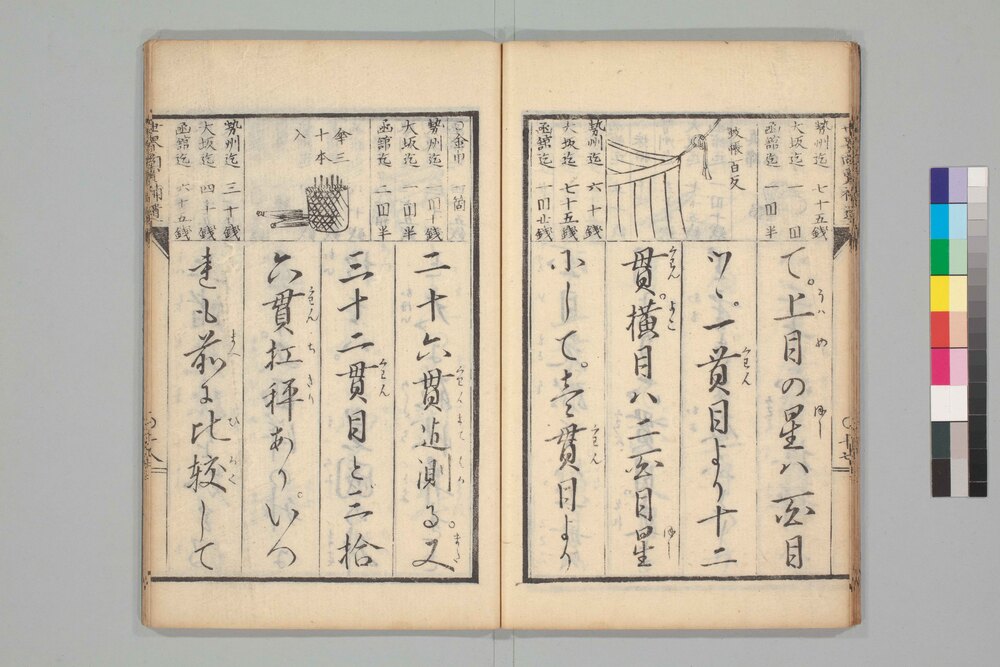 勢州迄 七十五銭
大坂迄 一円
函館迄 一円半
蚊帳百反
勢州迄 六十銭
大坂迄 七十五銭
函館迄 一円廿銭
て。上目の星ハ百目
ツヽ。一貫目より十二
貫。横目ハ二百目星
にして。壱貫目より
一箇
勢州迄 一円十銭
大坂迄 一円半
函館迄 二円半
傘三
十本
入
勢州迄 三十銭
大坂迄 四十銭
函館迄 六十五銭
二十六貫迄測る。又
三十二貫目と三拾
六貫杠秤あり。いつ
れも前に比較して